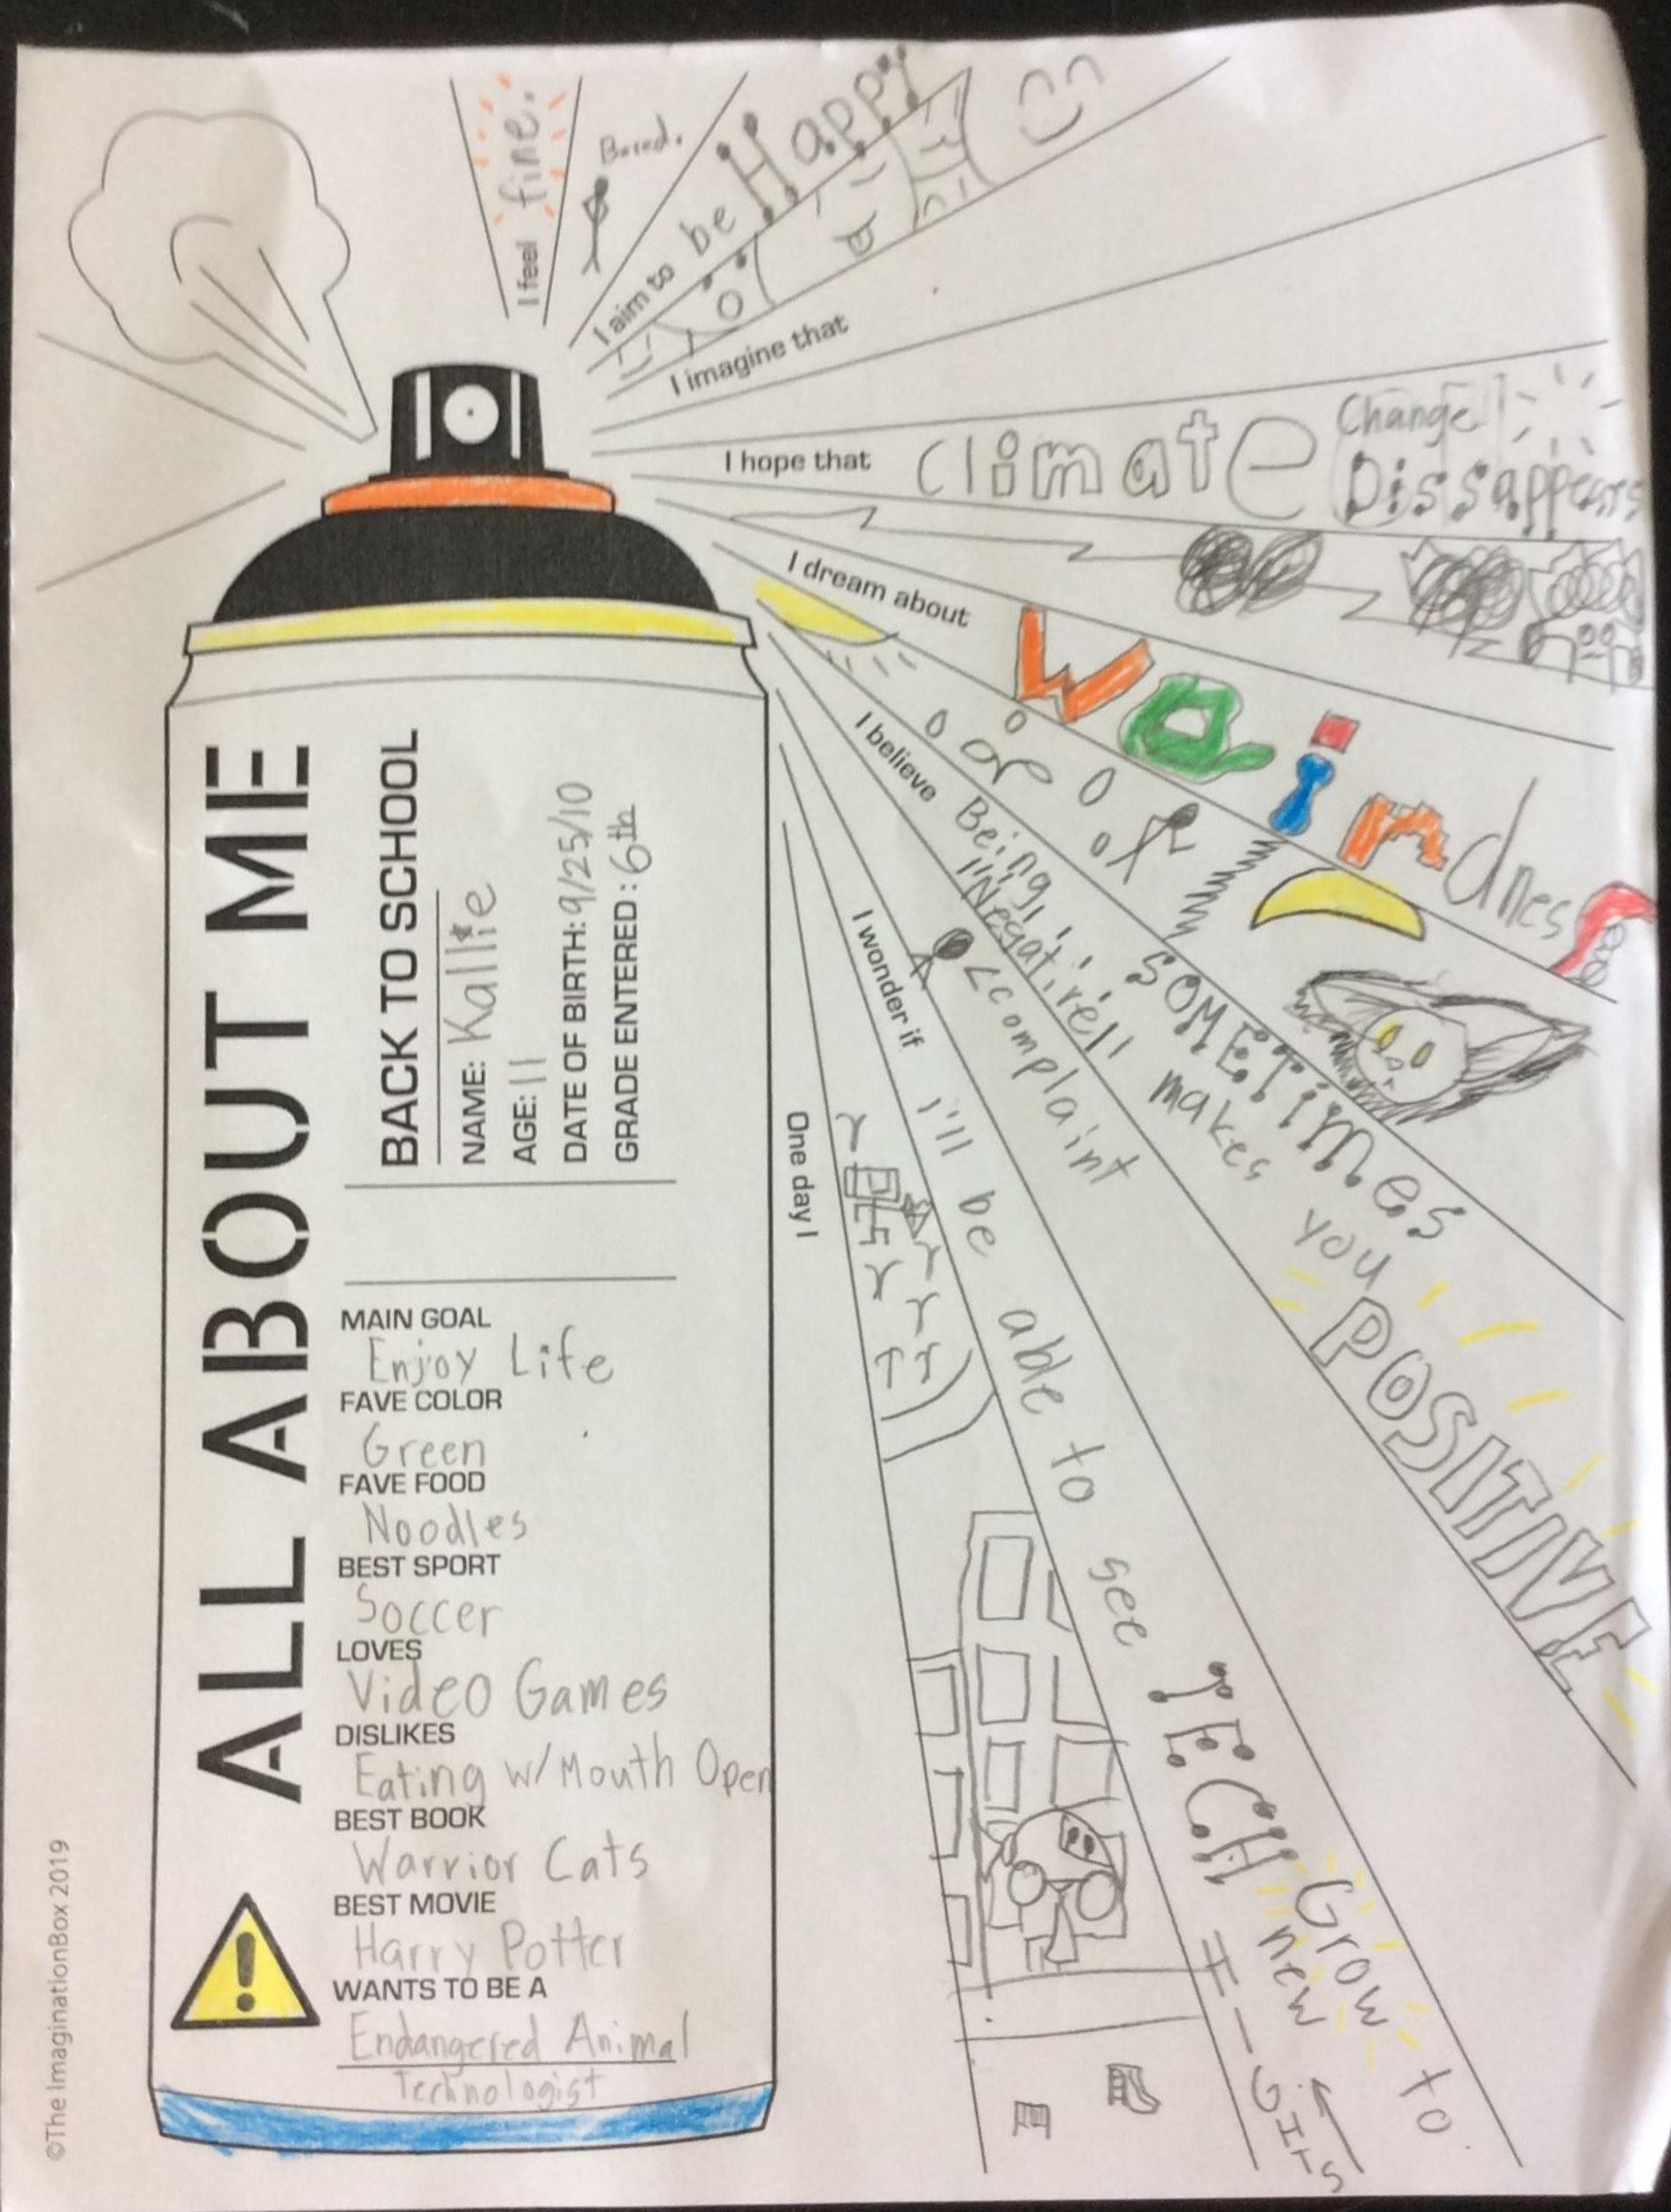 I feel fine.
Bored.
I aim to be Happy
I imagine that
I hope that climate Change Dissappears
I dream about wairdness
I believe Being "Negative" SOMETimes makes you POSITIVE
< complaint
I wonder if i'll be able to see TECH Grow to new
One day I
ALL ABOUT ME
BACK TO SCHOOL
NAME: Kallie
AGE: 11
DATE OF BIRTH: 9/25/10
GRADE ENTERED: 6th
MAIN GOAL
Enjoy Life
FAVE COLOR
Green
FAVE FOOD
Noodles
BEST SPORT
Soccer
LOVES
Video Games
DISLIKES
Eating w/Mouth Open
BEST BOOK
Warrior Cats
BEST MOVIE
Harry Potter
WANTS TO BE A
Endangered Animal
Technologist
©The ImaginationBox 2019